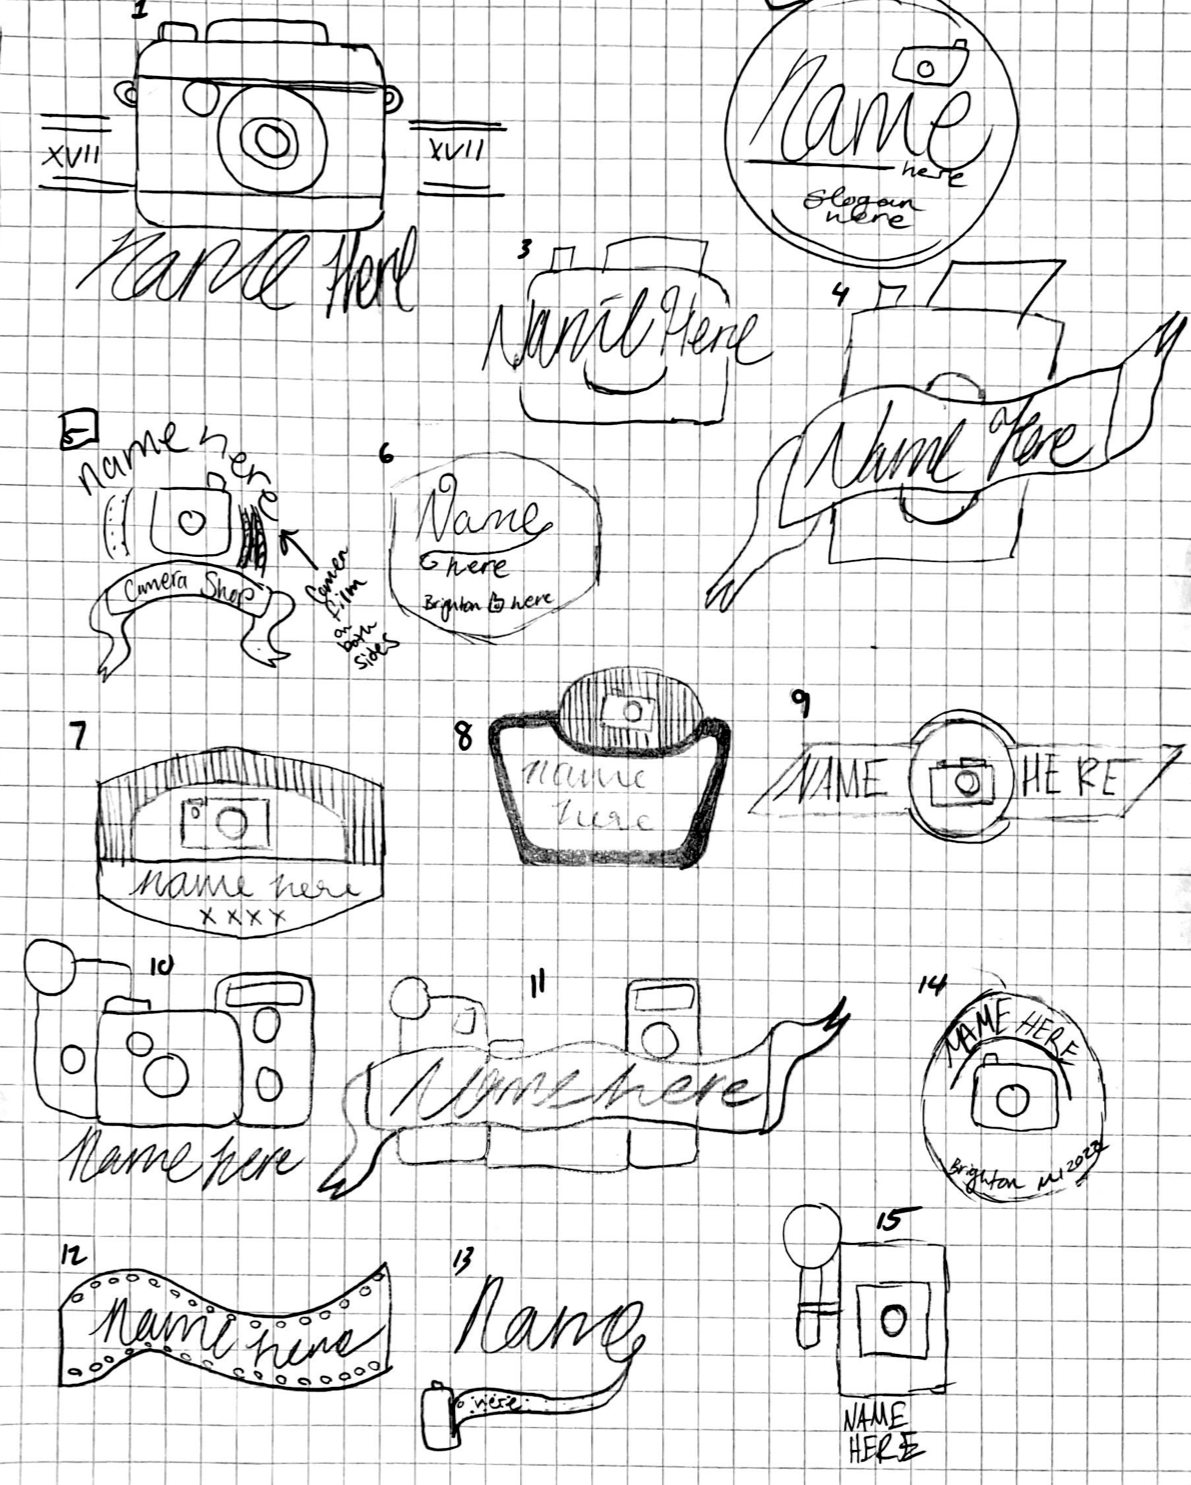 1
XVII
XVII
Name Here
Name
here
Slogan
here
3
Name Here
4
Name Here
5
name here
Camera Shop
Camera
film
on
both
sides
6
Name
here
Brighton here
7
name here
XXXX
8
name
here
9
NAME HERE
10
Name here
11
Name here
14
NAME HERE
Brighton MI 2022
12
Name here
13
Name
here
15
NAME
HERE